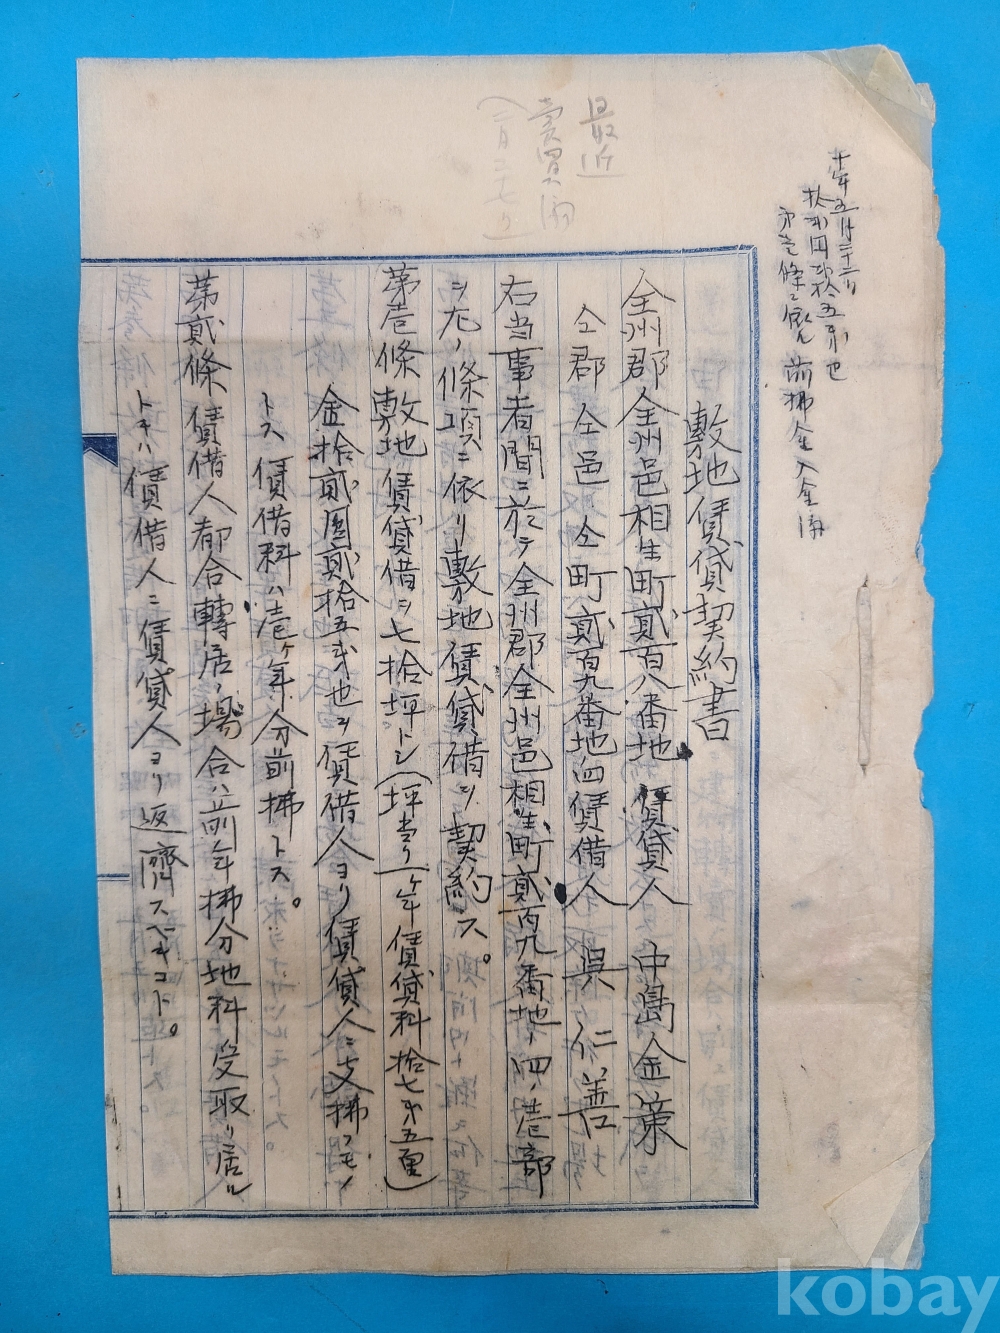 十年五月二十二日
拾弐円弐拾五戔也
第壱條ニ依ル前拂金入金済
最近
賣買済
敷地賃貸契約書
全州郡全州邑相生町貳百八番地 賃貸人 中島金策
仝郡 仝邑 仝町貳百九番地ノ四 賃借人 呉仁善
右当事者間ニ於テ全州郡全州邑相生町貳百九番地ノ四ノ壱部
ヲ左ノ條項ニ依リ敷地賃貸借ヲ契約ス。
第壱條 敷地賃貸借ヲ七拾坪トシ(坪当リ一ヶ年賃貸料拾七戔五厘)
金拾貳圓貳拾五戔也ヲ賃借人ヨリ賃貸人ニ支拂フモノ
トス 賃借料ハ壱ヶ年分前拂トス。
第貳條 賃借人都合轉居ノ場合ハ前年拂分地料受取リ居ル
トキハ賃借人ニ賃貸人ヨリ返濟スベキコト。
kobay